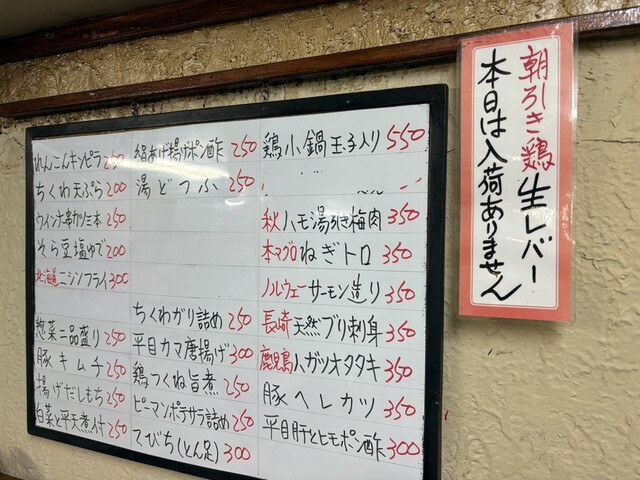 れんこんキンピラ 250
ちくわ天ぷら 200
ウインナー串カツ三本 250
そら豆塩ゆで 200
北海道ニシンフライ 300
惣菜二品盛り 250
豚キムチ 250
揚げだしもち 250
白菜と平天煮付 250
絹あげ揚げポン酢 250
湯どうふ 250
ちくわがり詰め 250
平目カマ唐揚げ 300
鶏つくね旨煮 250
ピーマンポテサラ詰め 250
てびち(とん足) 300
鶏小鍋玉子入り 550
秋ハモ湯引き梅肉 350
本マグロねぎトロ 350
ノルウェーサーモン造り 350
長崎天然ブリ刺身 350
鹿児島ハガツオタタキ 350
豚ヘレカツ 350
平目肝とヒモポン酢 300
朝引き鶏生レバー
本日は入荷ありません